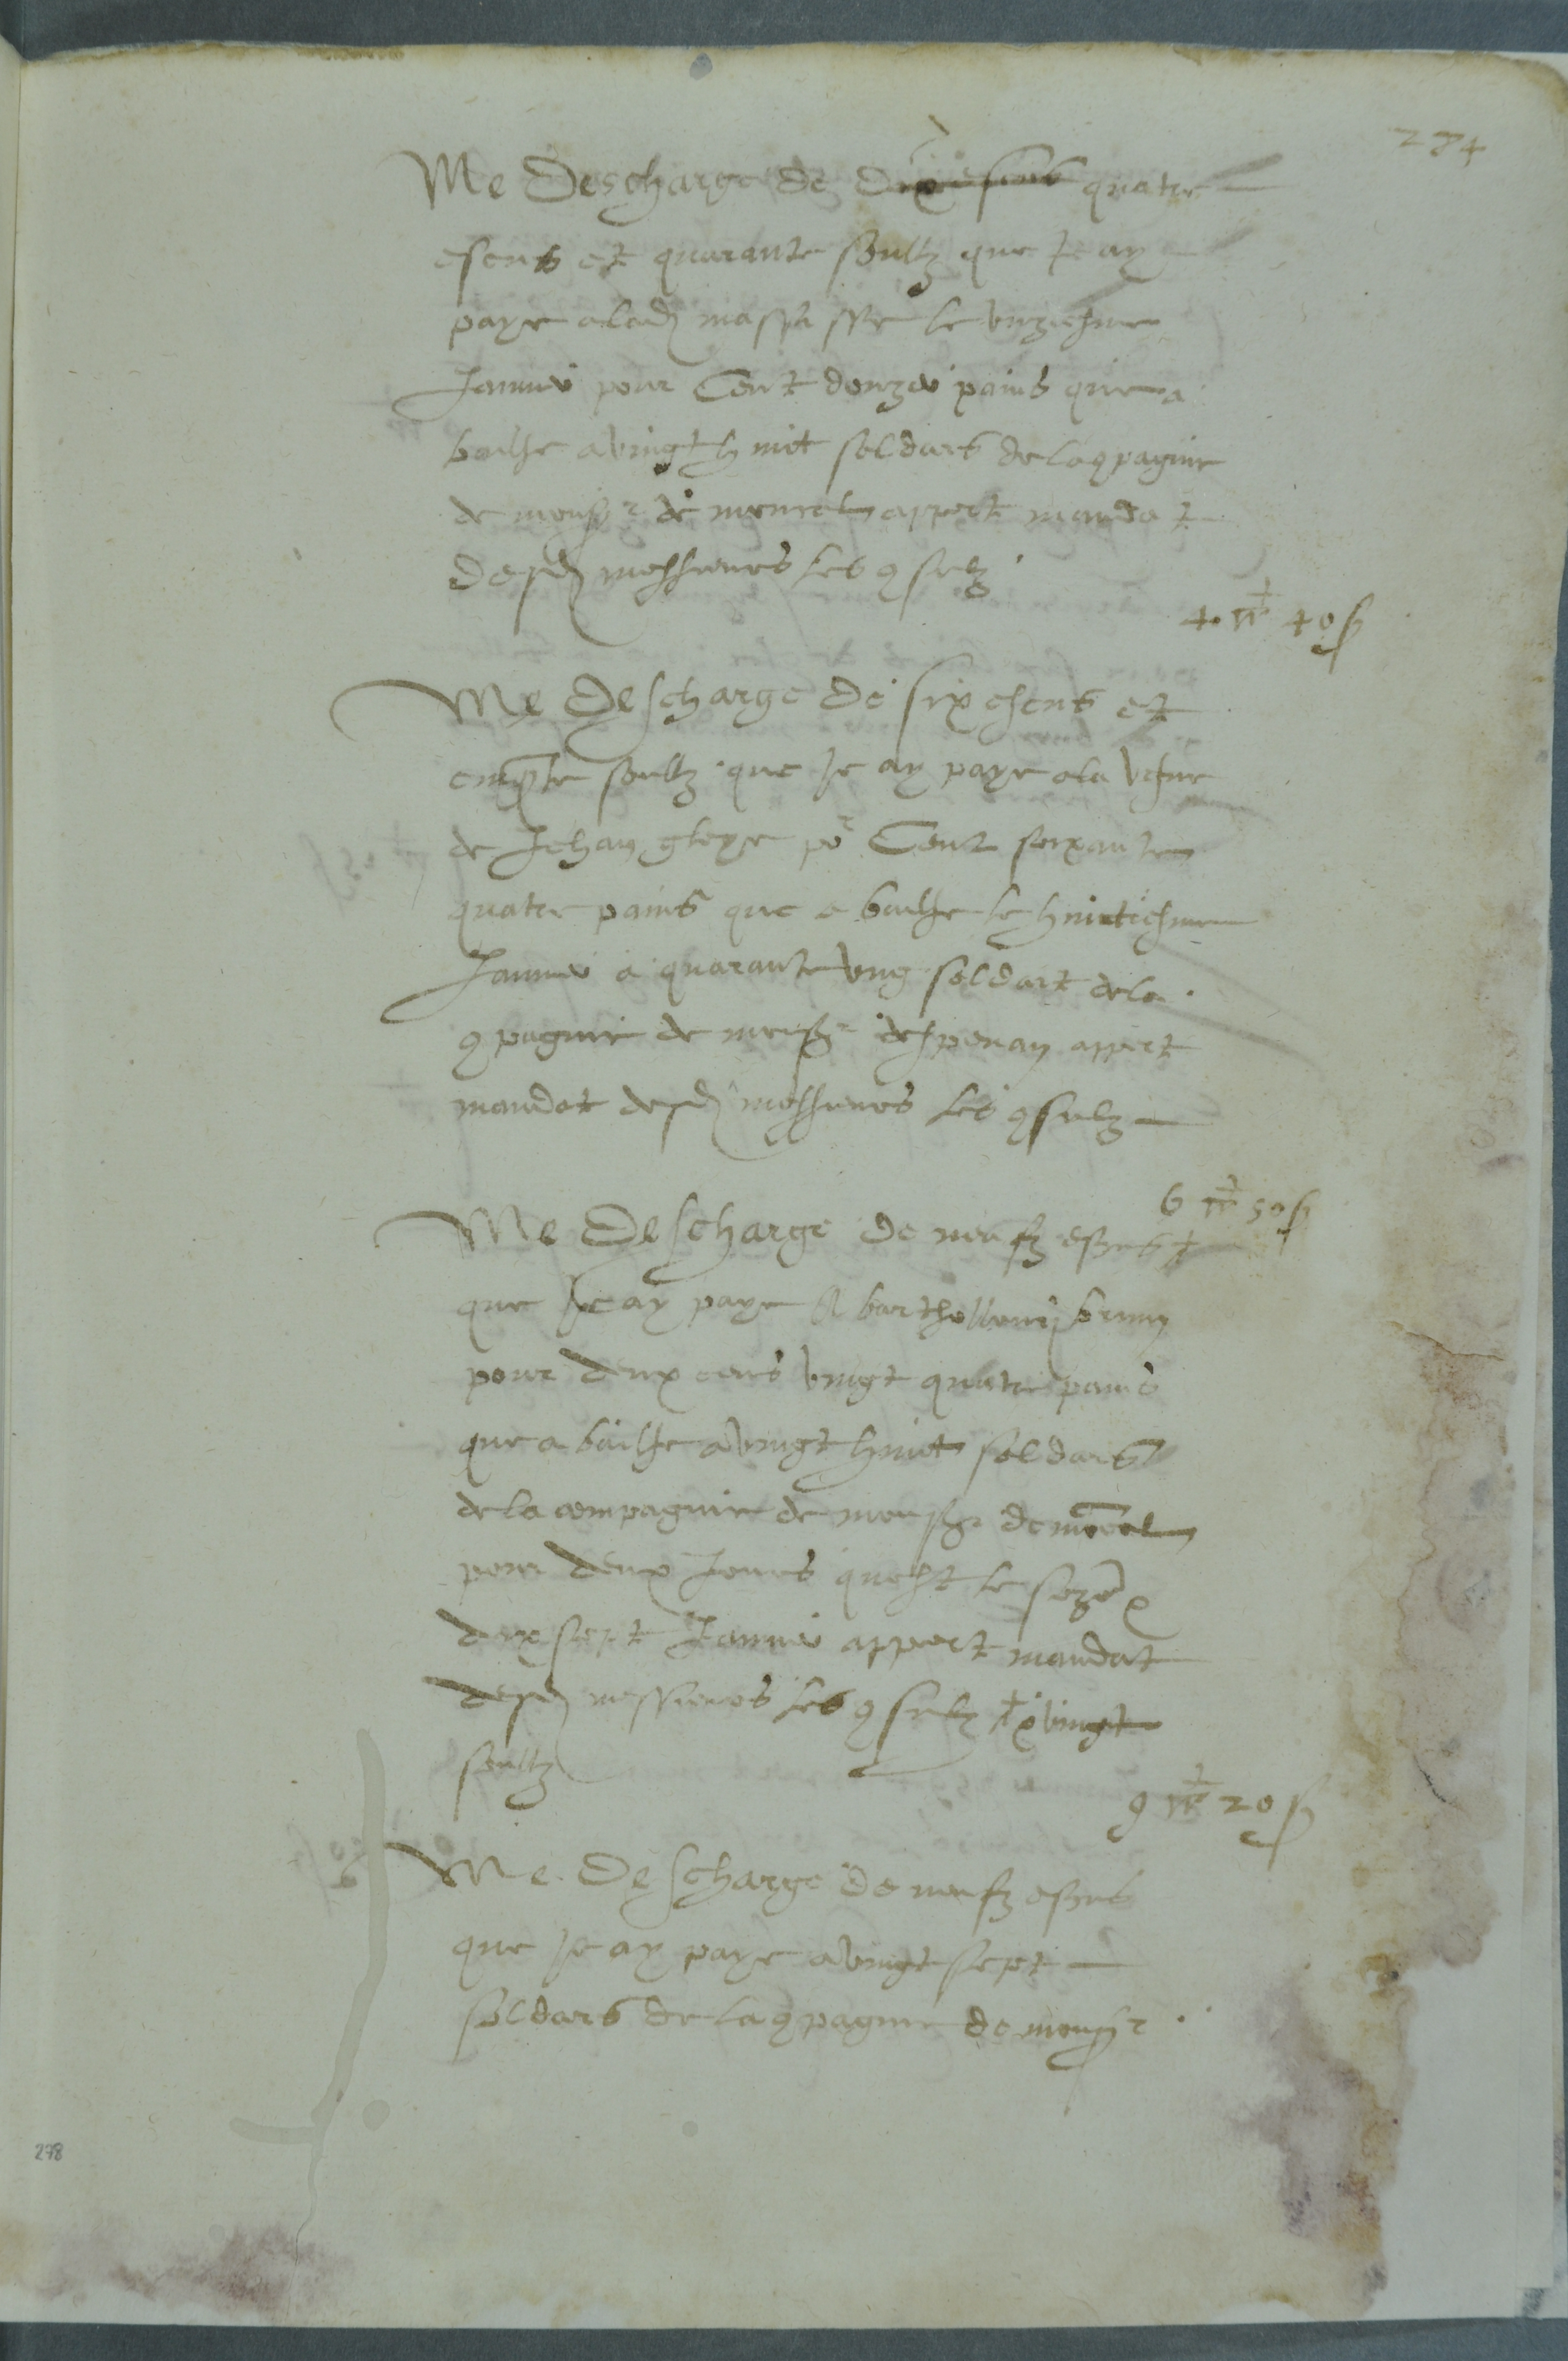 274
Me Descharge de dix escus quatre
escus et quarante soultz que Je ay
paye a lad masse le unziesme
Januier pour Cent douze pains que a
bailhe a vingt huit soldars de la 9pagnie
de monsr de apert mandat
desd messieurs les 9sulz
4 40 s
Me Descharge de six escus et
cinqte soultz que Je ay paye a la vefue
de Jehan gleye po Cent soixante
quatre pains que a bailhe le huictiesme
Januier a quarante ung soldart de la
9pagnie de monsr despenay appert
mandat desd messieurs les 9sulz
6 50 s
Me Descharge de neufz escus
que Je ay paye A barthellemy bruny
pour deux cens vingt quatre pains
que a bailhe a vingt huict soldars
de la compagnie de monsr de
pour deux Jours quest le seze
dixsept Januier appert mandat
desd messieurs les 9sulz vingt
soultz
9 20 s
Me Descharge de neufz escus
que Je ay paye a vingt sept
soldars de la 9pagnie de monsr
278